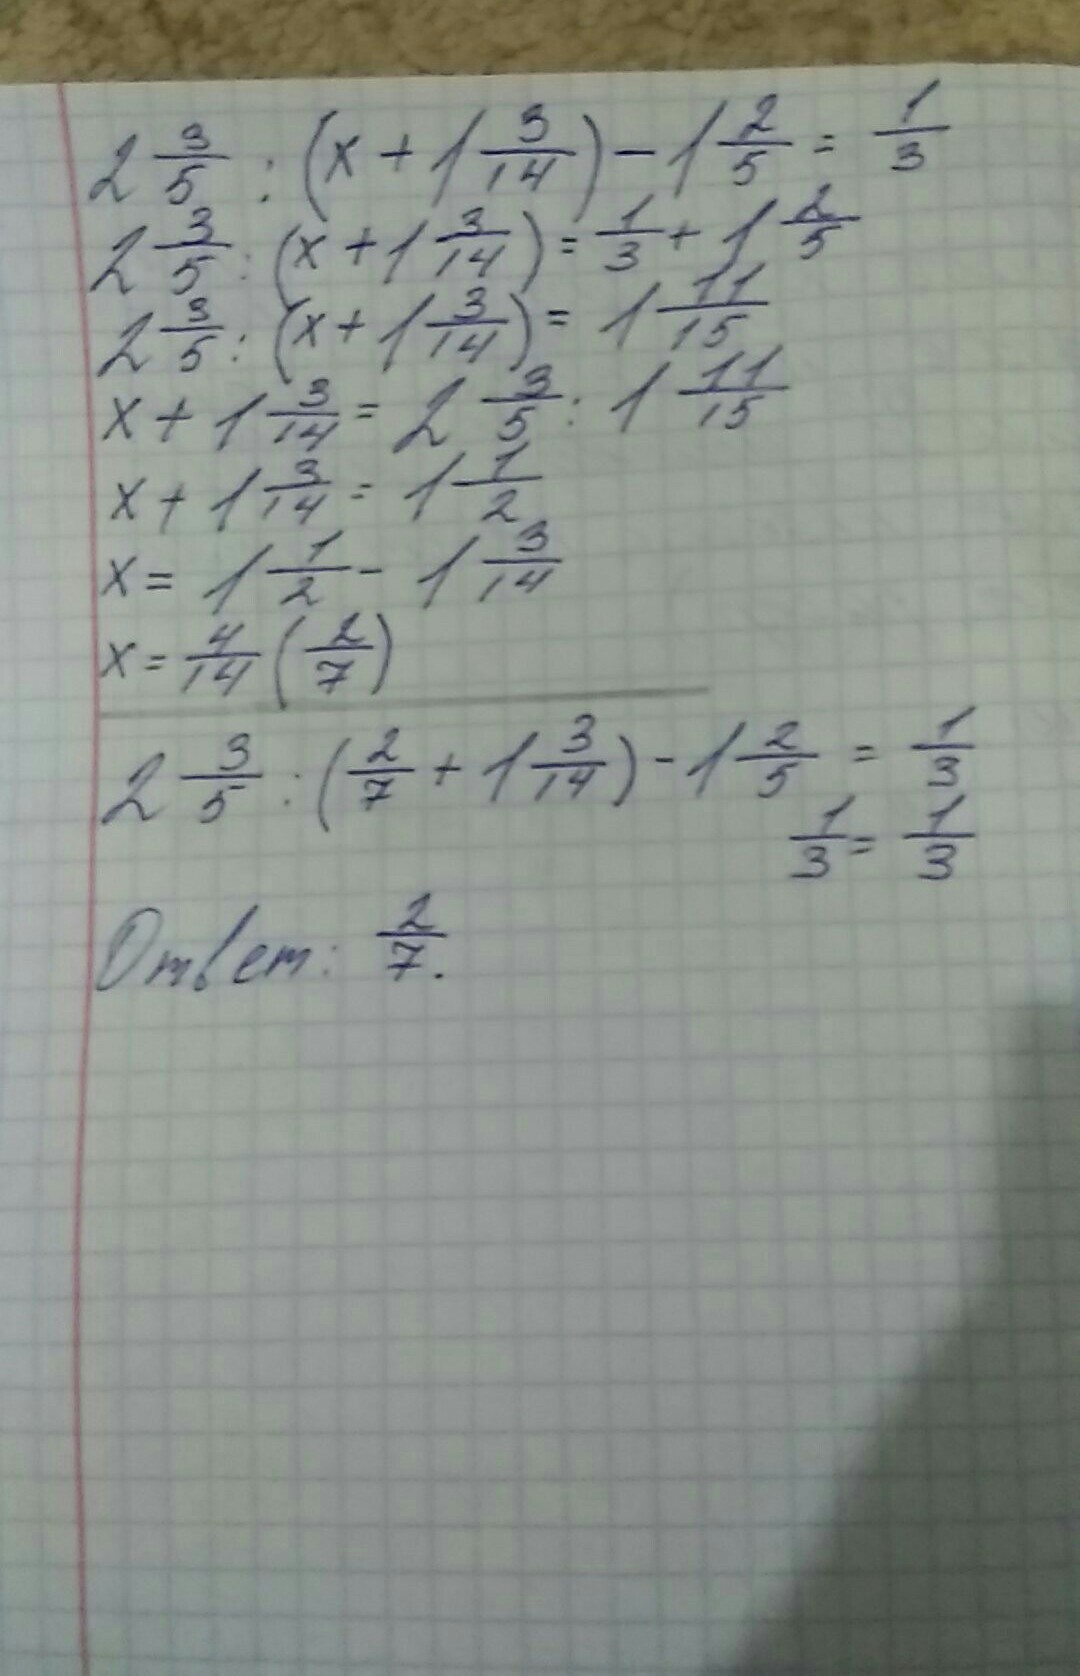 2 3/5 : (x + 1 3/14) - 1 2/5 = 1/3
2 3/5 : (x + 1 3/14) = 1/3 + 1 2/5
2 3/5 : (x + 1 3/14) = 1 11/15
x + 1 3/14 = 2 3/5 : 1 11/15
x + 1 3/14 = 1 1/2
x = 1 1/2 - 1 3/14
x = 4/14 (2/7)
2 3/5 : (2/7 + 1 3/14) - 1 2/5 = 1/3
1/3 = 1/3
Ответ: 2/7.